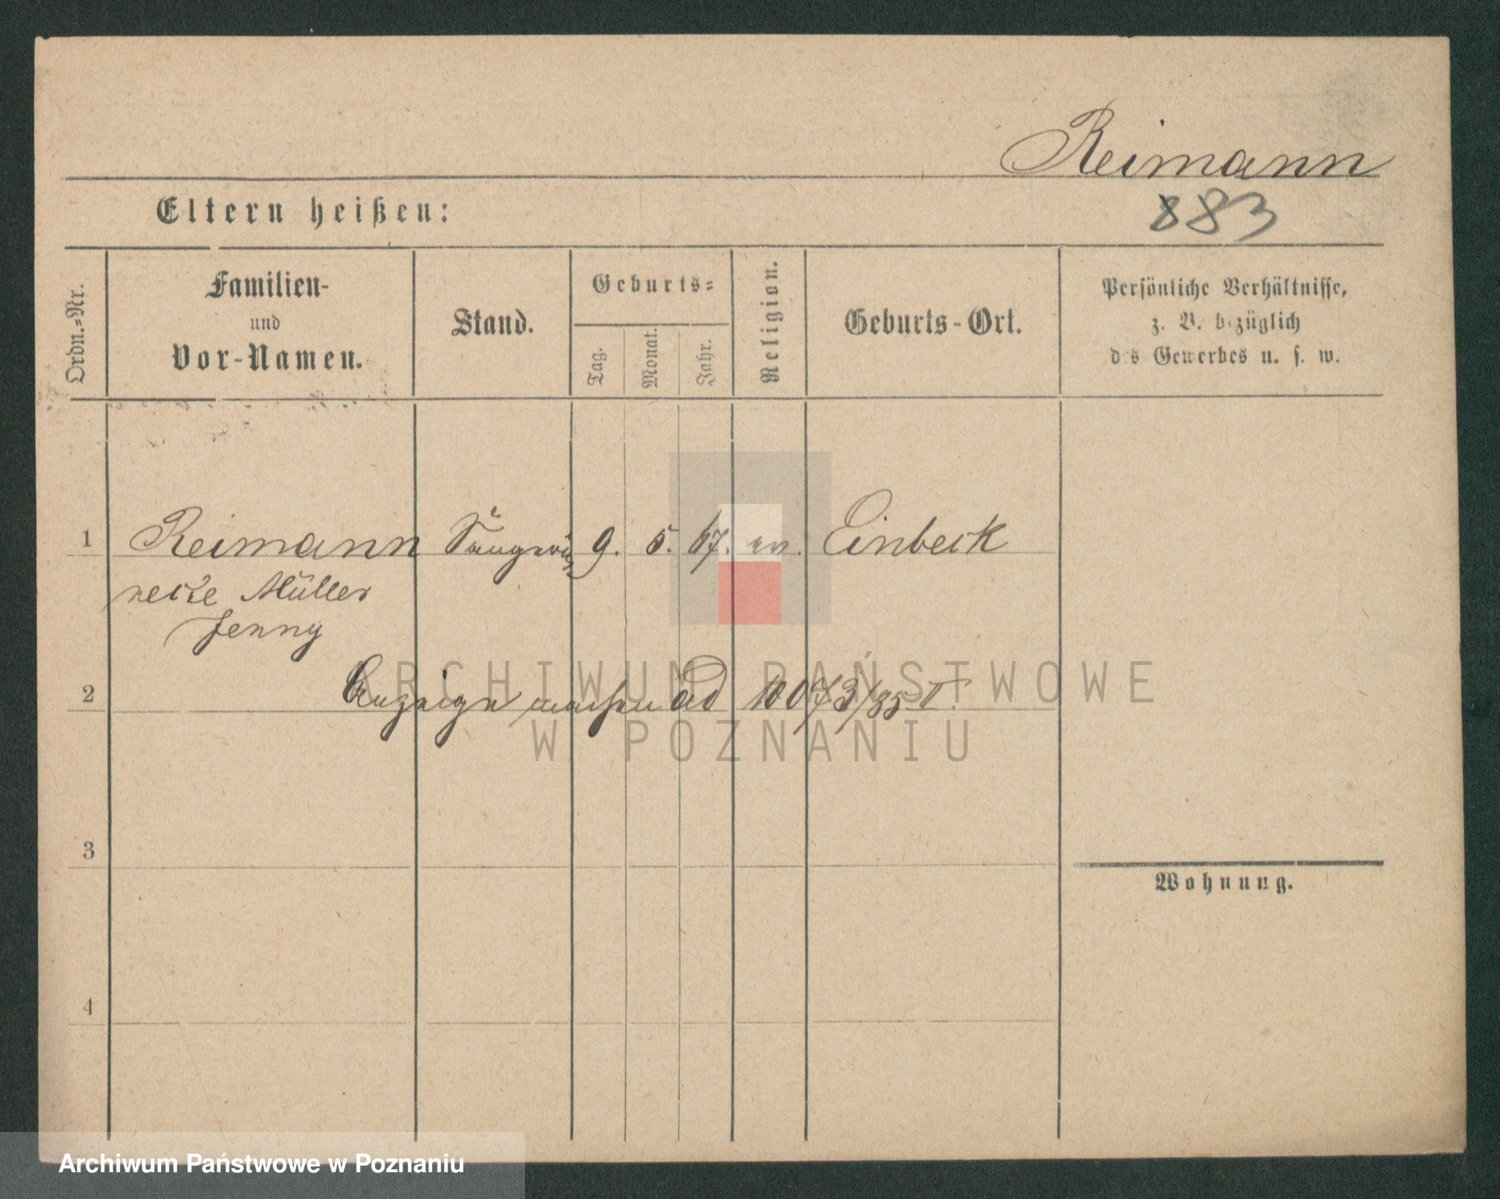 Reimann
883
Eltern heißen:
Ordn.=Nr.
Familien-
und
Vor-Namen.
Stand.
Geburts=
Tag.
Monat.
Jahr.
Religion.
Geburts-Ort.
Persönliche Verhältnisse,
z. B. bezüglich
des Gewerbes u. s. w.
1 Reimann Sängerin 9. 5. 67. ev. Einbeck
Müller
Jenny
2 Anzeige machen ad 10073/85 I.
3
4
Wohnung.
ARCHIWUM PAŃSTWOWE
W POZNANIU
Archiwum Państwowe w Poznaniu